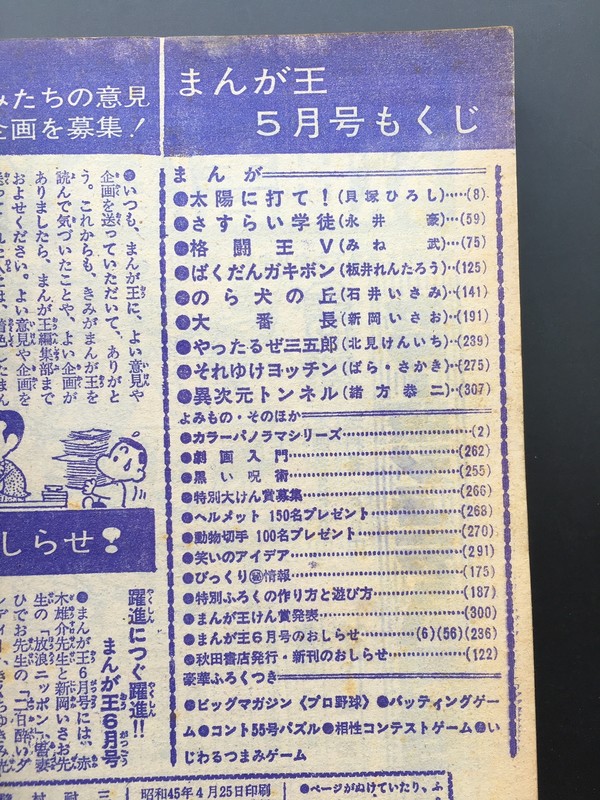 まんが王
5月号もくじ
まんが
●太陽に打て！(貝塚ひろし)‥‥(8)
●さすらい学徒(永井豪)‥(59)
●格闘王V(みね武)‥(75)
●ばくだんガキボン(板井れんたろう)‥(125)
●のら犬の丘(石井いさみ)‥(141)
●大番長(新岡いさお)‥(191)
●やったるぜ三五郎(北見けんいち)‥(239)
●それゆけヨッチン(ばら・さかき)‥(275)
●異次元トンネル(緒方恭二)‥(307)
よみもの・そのほか
●カラーパノラマシリーズ………(2)
●劇画入門………(262)
●黒い呪術………(255)
●特別大けん賞募集………(266)
●ヘルメット 150名プレゼント………(268)
●動物切手 100名プレゼント………(270)
●笑いのアイデア………(291)
●びっくり㊙情報………(175)
●特別ふろくの作り方と遊び方………(187)
●まんが王けん賞発表………(300)
●まんが王6月号のおしらせ……(6)(56)(236)
●秋田書店発行・新刊のおしらせ……(122)
豪華ふろくつき
●ビッグマガジン《プロ野球》●バッティングゲー
ム●コント55号パズル●相性コンテストゲーム●い
じわるつまみゲーム
みたちの意見
企画を募集！
●いつも、まんが王に、よい意見や
企画を送っていただいて、ありがと
う。これからも、きみがまんが王を
読んで気づいたことや、よい企画が
ありましたら、まんが王編集部まで
およせください。よい意見や企画を
しらせ！
躍進につぐ躍進!!
まんが王6月号
●まんが王6月号には、赤
木雄介先生と新岡いさお先
生の「放浪ニッポン」、
ひでお先生の「二日酔いダ
昭和45年4月25日印刷
●ページがぬけていたり、ふ